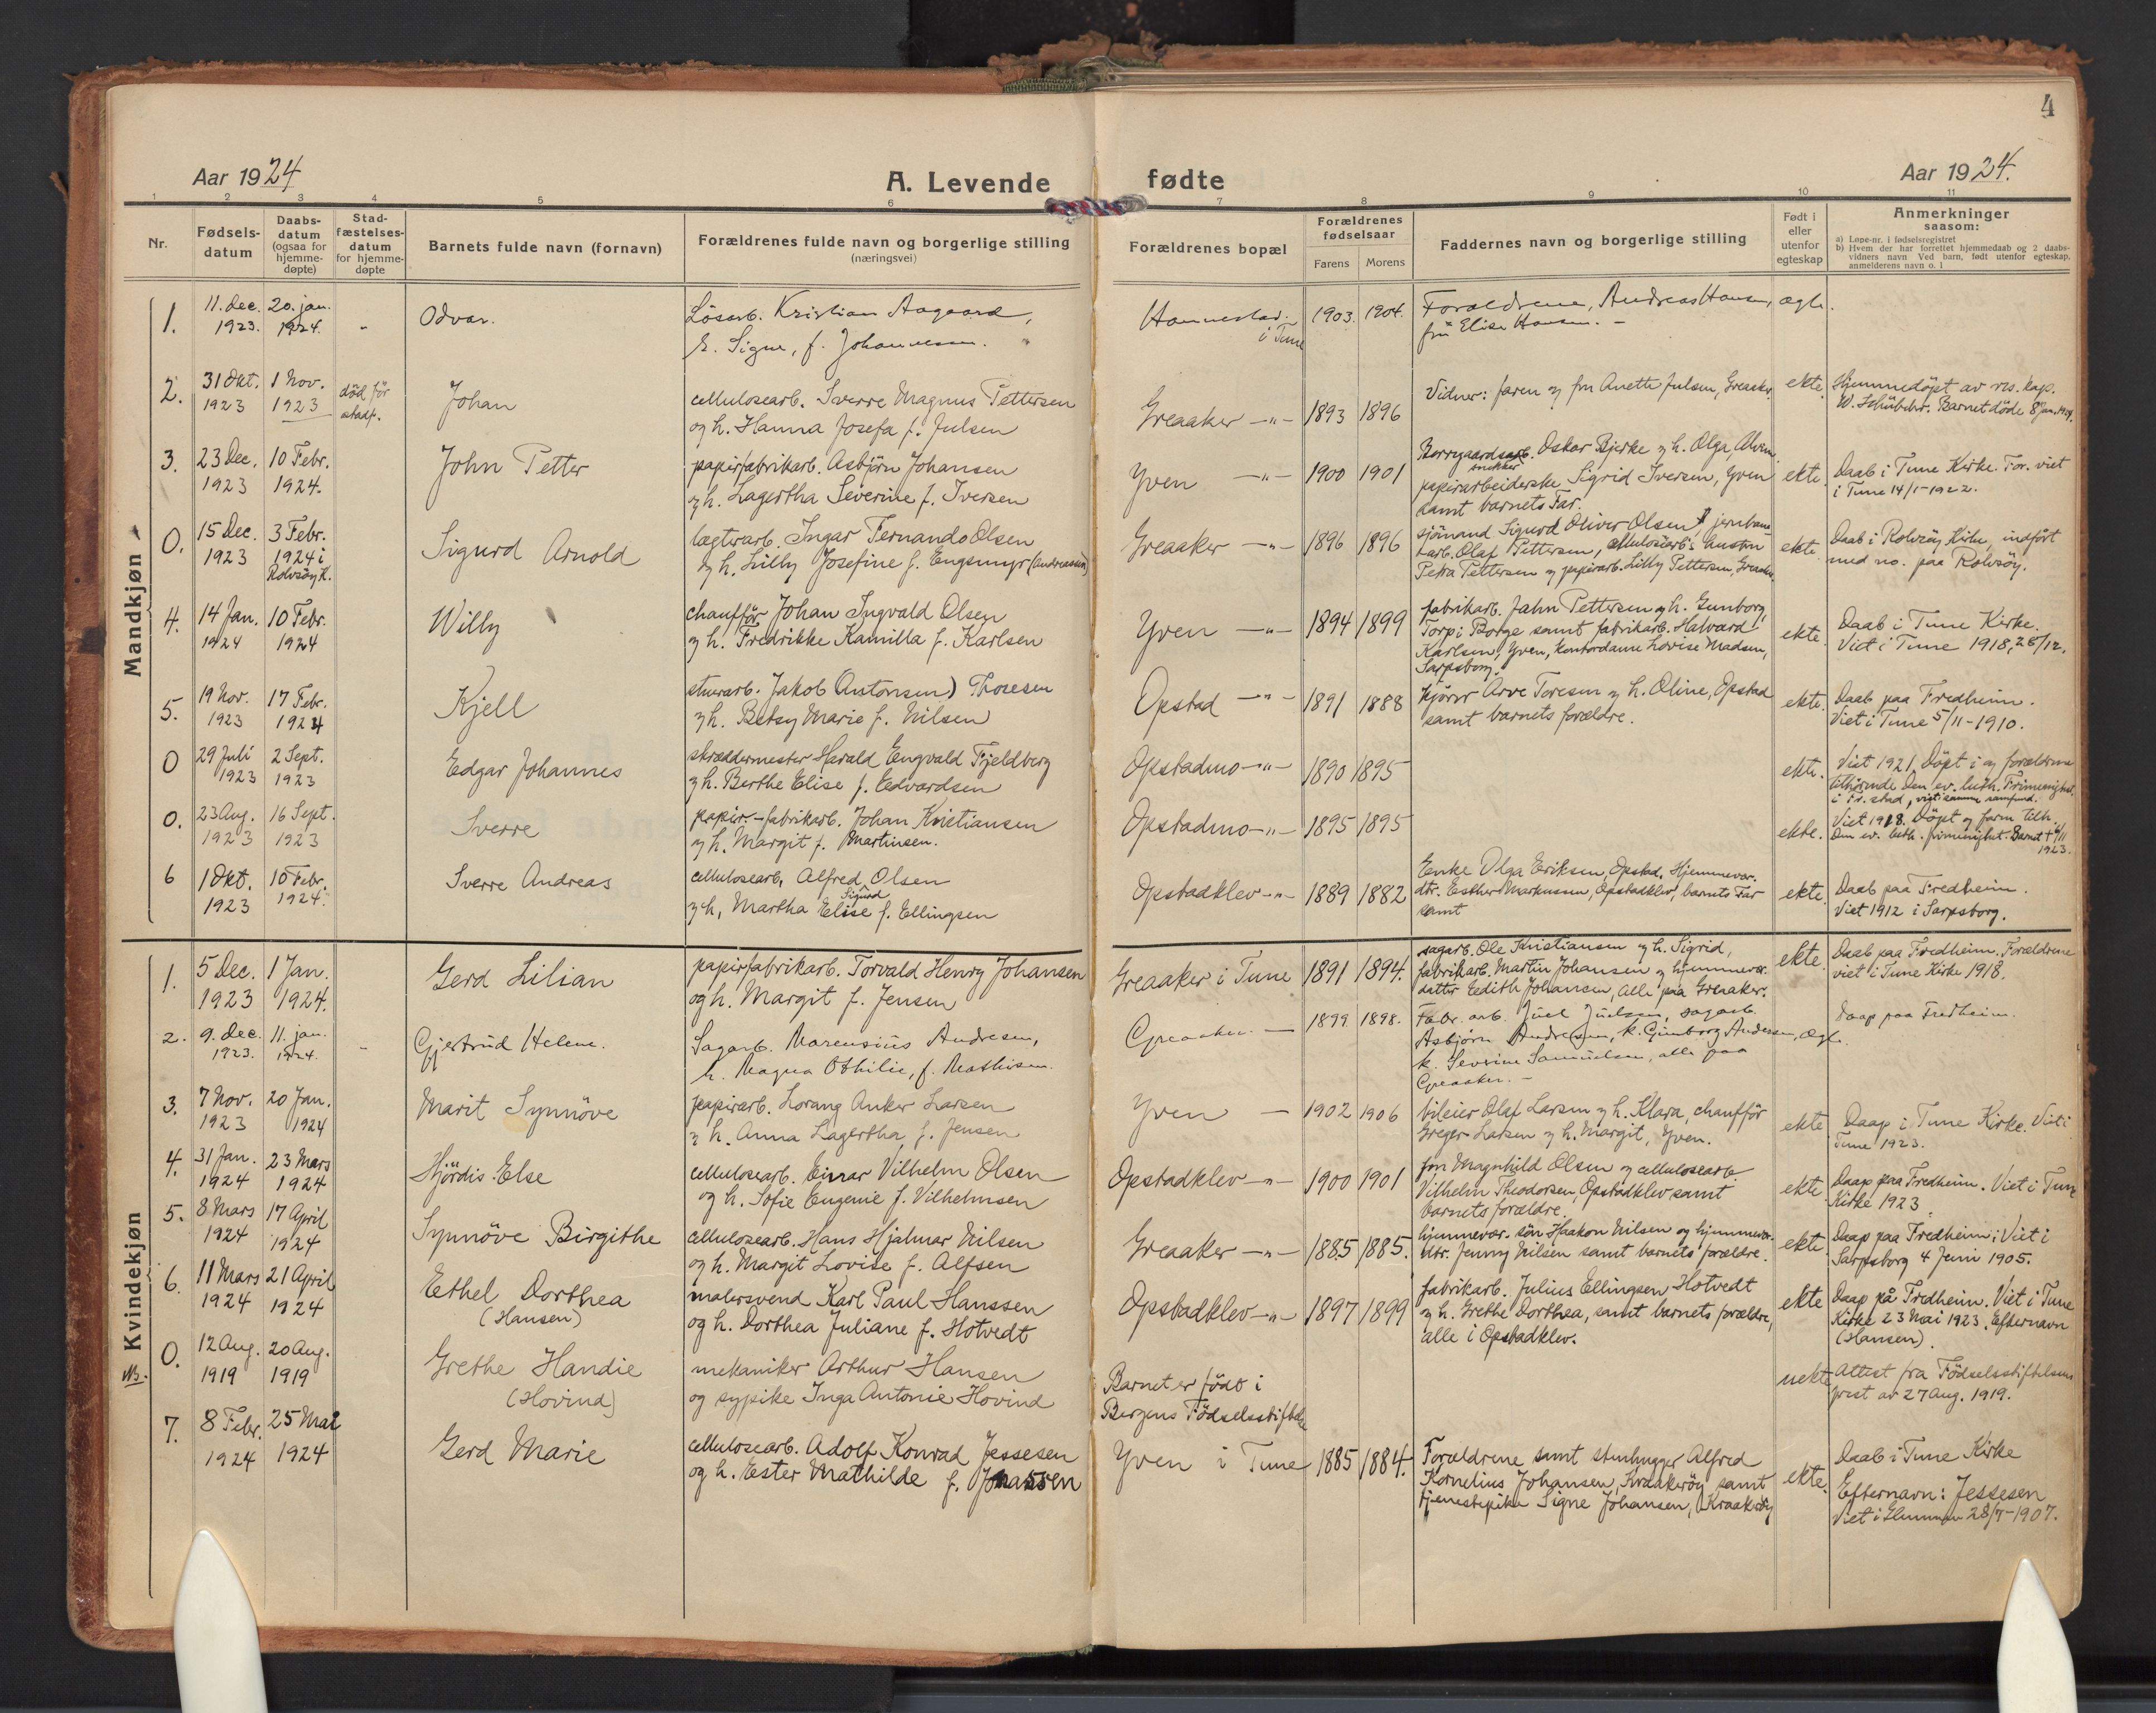 4
Aar 1924
A. Levende fødte
Aar 1924.
1 2 3 4 5 6 7 8 9 10 11
Nr.
Fødsels-
datum
Daabs-
datum
(ogsaa for
hjemme-
døpte)
Stad-
fæstelses-
datum
for hjemme-
døpte
Barnets fulde navn (fornavn)
Forældrenes fulde navn og borgerlige stilling
(næringsvei)
Forældrenes bopæl
Forældrenes
fødselsaar
Farens Morens
Faddernes navn og borgerlige stilling
Født i
eller
utenfor
egteskap
Anmerkninger
saasom:
a) Løpe-nr. i fødselsregistret
b) Hvem der har forrettet hjemmedaab og 2 daabs-
vidners navn Ved barn, født utenfor egteskap,
anmelderens navn o. l
Mandkjøn
1.
11. dec. 20. jan.
1923. 1924.
Odvar.
Løsarb. Kristian Aagaard,
h. Signe, f. Johannessen.
Hannestad.
i Tune
1903. 1904.
Forældrene, Andreas Hansen,
fru Elise Hansen. –
ægte.
2.
31 Okt. 1 Nov.
1923 1923
död før
stadf.
Johan
cellulosearb. Sverre Magnus Pettersen
og h. Hanna Josefa f. Julsen
Greaaker –"–
1893 1896
Vidner: faren og fru Anette Julsen, Greaaker.
ekte.
Hjemmedöpt av res. kap.
W. Schübeler. Barnet döde 8 jan. 1924.
3.
23 Dec. 10 Febr.
1923 1924.
John Petter
papirfabrikarb. Asbjörn Johansen
og h. Lagertha Severine f. Iversen
Yven –"–
1900 1901
Borregaardsarb. Oskar Bjerke og h. Olga,
snekker
papirarbeiderske Sigrid Iversen, Yven
samt barnets Far.
ekte.
Daab i Tune Kirke. For. viet
i Tune 14/1-1922.
0.
15 Dec. 3 Febr.
1923 1924 i
Rolvsöy K.
Sigurd Arnold
lægterarb. Ingar Fernando Olsen
og h. Lilly Josefine f. Engsmyr (Andreassen)
Greaaker –"–
1896 1896
sjömand Sigurd Oliver Olsen, jernbane-
arb. Olaf Pettersen, cellulosearb's hustru
Petra Pettersen og papirarb. Lilly Pettersen, Greaaker.
ekte.
Daab i Rolvsöy Kirke, indfört
med no. paa Rolvsöy.
4.
14 Jan. 10 Febr.
1924 1924
Willy
chaufför Johan Ingvald Olsen
og h. Fredrikke Kamilla f. Karlsen
Yven –"–
1894 1899
fabrikarb. Jahn Pettersen og h. Gunborg,
Torp i Borge samt fabrikarb. Halvard
Karlsen, Yven, kontordame Lovise Madsen,
Sarpsborg.
ekte.
Daab i Tune Kirke.
Viet i Tune 1918, 28/12.
5.
19 Nov. 17 Febr.
1923 1924
Kjell
stuerarb. Jakob Antonsen) Thoresen
og h. Betsy Marie f. Nilsen
Opstad –"–
1891 1888
kjörer Arve Toresen og h. Oline, Opstad
samt barnets forældre.
ekte.
Daab paa Fredheim.
Viet i Tune 5/11-1910.
0
29 Juli 2 Sept.
1923 1923
Edgar Johannes
skræddermester Harald Engvald Fjeldberg
og h. Berthe Elise f. Edvardsen
Opstadmo –"–
1890 1895
ekte.
Viet 1921, Döpt i og forældrene
tilhörende Den ev. luth. Frimenighet
i Fr.stad, viet i samme samfund.
0.
23 Aug. 16 Sept.
1923 1923
Sverre
papir.-fabrikarb. Johan Kristiansen
og h. Margit f. Martinsen.
Opstadmo –"–
1895 1895
ekte.
Viet 1918. Döpt og farm tilh.
Den ev. luth. frimenighet. Barnet † 6/11
1923.
6
1 Okt. 10 Febr.
1923 1924.
Sverre Andreas
cellulosearb. Alfred Olsen
Sigurd
og h. Martha Elise f. Ellingsen
Opstadklev –"–
1889 1882
Enke Olga Eriksen, Opstad, Hjemmevær.
dtr. Esther Markussen, Opstadklev, barnets Far
samt
ekte.
Daab paa Fredheim.
Viet 1912 i Sarpsborg.
Kvindekjøn
1.
5 Dec. 1 Jan.
1923 1924.
Gerd Lilian
papirfabrikarb. Torvald Henry Johansen
og h. Margit f. Jensen
Greaaker i Tune
1891 1894.
sagarb. Ole Kristiansen og h. Sigrid,
fabrikarb. Martin Johansen og hjemmevær.
datter Edith Johansen, alle paa Greaaker.
ekte.
Daab paa Fredheim. Forældrene
viet i Tune Kirke 1918.
2.
9. dec. 11. jan.
1923. 1924.
Gjertrud Helene.
Sagarb. Marensius Andresen,
h. Magna Othilie, f. Mathisen.
Greaaker. –
1899 1898.
Fabr. arb. Juel Juelsen, sagarb.
Asbjørn Andresen, k. Gunborg Andersen,
k. Sevrine Samuelsen, alle paa
Greaaker. –
ægte.
Daap paa Fredheim.
3.
7 Nov. 20 Jan.
1923 1924
Marit Synnöve
papirarb. Lorang Anker Larsen
og h. Anna Lagertha f. Jensen
Yven –
1902 1906
bileier Olaf Larsen og h. Klara, chaufför
Greger Larsen og h. Margit, Yven.
ekte
Daap i Tune Kirke. Viet i
Tune 1923.
4.
31 Jan. 23 Mars
1924 1924
Hjördis Else
cellulosearb. Einar Vilhelm Olsen
og h. Sofie Eugenie f. Vilhelmsen
Opstadklev –"–
1900 1901
fru Magnhild Olsen og cellulosearb.
Vilhelm Theodorsen, Opstadklev samt
barnets forældre.
ekte.
Daap paa Fredheim. Viet i Tune
Kirke 1923.
5.
8 Mars 17 April
1924 1924
Synnöve Birgithe
cellulosearb. Hans Hjalmar Nilsen
og h. Margit Lovise f. Alfsen
Greaaker –"–
1885 1885.
hjemmevær. sön Haakon Nilsen og hjemmevær.
dtr. Jenny Nilsen samt barnets forældre.
ekte.
Daap paa Fredheim; Viet i
Sarpsborg 4 Juni 1905.
6.
11 Mars 21 April
1924 1924
Ethel Dorthea
(Hansen)
malersvend Karl Paul Hanssen
og h. Dorthea Juliane f. Hotvedt
Opstadklev –"–
1897 1899
fabrikarb. Julius Ellingsen Hotvedt
og h. Grethe Dorthea, samt barnets forældre,
alle i Opstadklev.
ekte
Daap på Fredheim. Viet i Tune
Kirke 23 Mai 1923. Efternavn
(Hansen).
Nb. 0.
12 Aug. 20 Aug.
1919 1919
Grethe Handie
(Hovind)
mekaniker Arthur Hansen
og sypike Inga Antonie Hovind
Barnet er födt i
Bergens Födselsstiftelse
uekte
Attest fra Födselsstiftelsens
prest av 27 Aug. 1919.
7.
8 Febr. 25 Mai
1924 1924
Gerd Marie
cellulosearb. Adolf Konrad Jessesen
og h. Ester Mathilde f. Johansen
Yven i Tune
1885 1884.
Forældrene samt stenhugger Alfred
Kornelius Johansen, Kraakeröy samt
tjenestepike Signe Johansen, Kraakeröy
ekte.
Daab i Tune Kirke
Efternavn: Jessesen
Viet i Glemmen 28/7-1907.